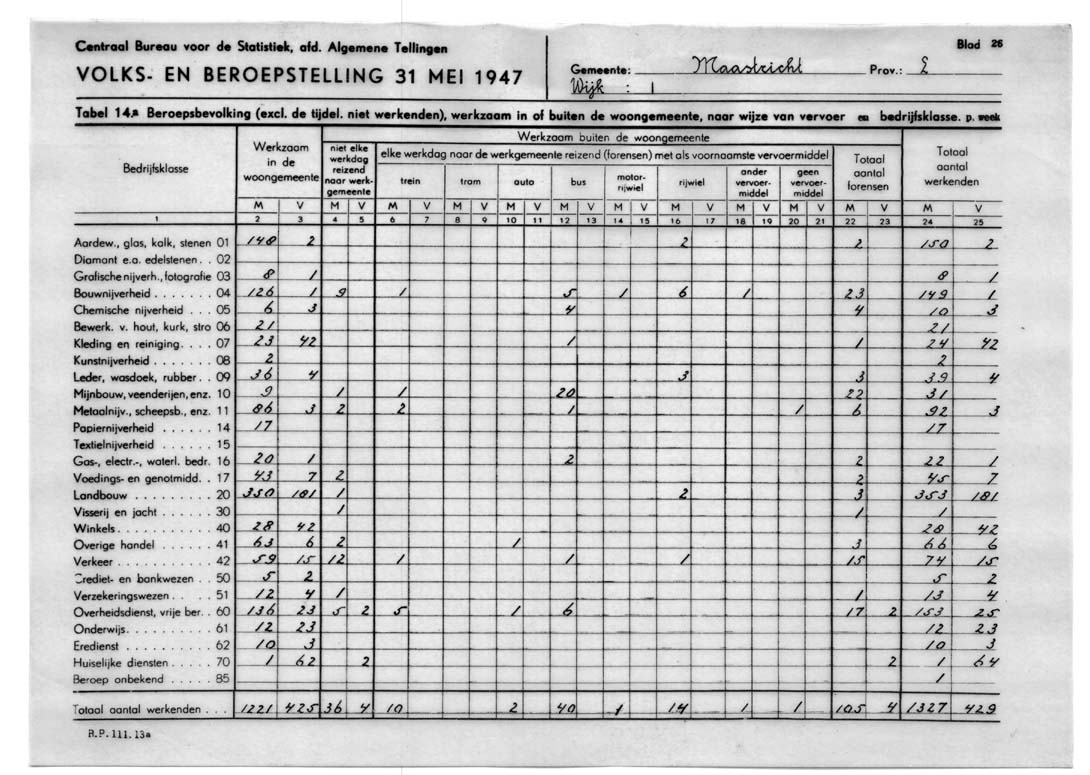 Centraal Bureau voor de Statistiek, afd. Algemene Tellingen
Blad 26
VOLKS- EN BEROEPSTELLING 31 MEI 1947
Gemeente: Maastricht Prov.: L
Wijk : 1
Tabel 14.a Beroepsbevolking (excl. de tijdel. niet werkenden), werkzaam in of buiten de woongemeente, naar wijze van vervoer en bedrijfsklasse. p. week
Bedrijfsklasse
Werkzaam in de woongemeente
Werkzaam buiten de woongemeente
niet elke werkdag reizend naar werkgemeente
elke werkdag naar de werkgemeente reizend (forensen) met als voornaamste vervoermiddel
trein tram auto bus motor-rijwiel rijwiel ander vervoer-middel geen vervoer-middel
Totaal aantal forensen
Totaal aantal werkenden
M V M V M V M V M V M V M V M V M V M V M V M V
1 2 3 4 5 6 7 8 9 10 11 12 13 14 15 16 17 18 19 20 21 22 23 24 25
Aardew., glas, kalk, stenen 01 148 2 2 2 150 2
Diamant e.a. edelstenen . . 02
Grafische nijverh., fotografie 03 8 1 8 1
Bouwnijverheid . . . . . . . 04 126 1 9 1 5 1 6 1 23 149 1
Chemische nijverheid . . . 05 6 3 4 4 10 3
Bewerk. v. hout, kurk, stro 06 21 21
Kleding en reiniging . . . . 07 23 42 1 1 24 42
Kunstnijverheid . . . . . . 08 2 2
Leder, wasdoek, rubber . . 09 36 4 3 3 39 4
Mijnbouw, veenderijen, enz. 10 9 1 1 20 22 31
Metaalnijv., scheepsb., enz. 11 86 3 2 2 1 1 6 92 3
Papiernijverheid . . . . . . 14 17 17
Textielnijverheid . . . . . 15
Gas-, electr.-, waterl. bedr. 16 20 1 2 2 22 1
Voedings- en genotmidd. . 17 43 7 2 2 45 7
Landbouw . . . . . . . . . 20 350 181 1 2 3 353 181
Visserij en jacht . . . . . . 30 1 1 1
Winkels . . . . . . . . . . 40 28 42 28 42
Overige handel . . . . . . 41 63 6 2 1 3 66 6
Verkeer . . . . . . . . . . 42 59 15 12 1 1 1 15 74 15
Crediet- en bankwezen . . 50 5 2 5 2
Verzekeringswezen . . . . 51 12 4 1 1 13 4
Overheidsdienst, vrije ber. . 60 136 23 5 2 5 1 6 17 2 153 25
Onderwijs . . . . . . . . . 61 12 23 12 23
Eredienst . . . . . . . . . 62 10 3 10 3
Huiselijke diensten . . . . . 70 1 62 2 2 1 64
Beroep onbekend . . . . . 85 1
Totaal aantal werkenden . . . 1221 425 36 4 10 2 40 1 14 1 1 105 4 1327 429
R.P. 111.13a